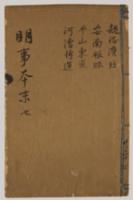 親征漠北
安南叛服
平山東盜
河漕轉運
明事本末 七